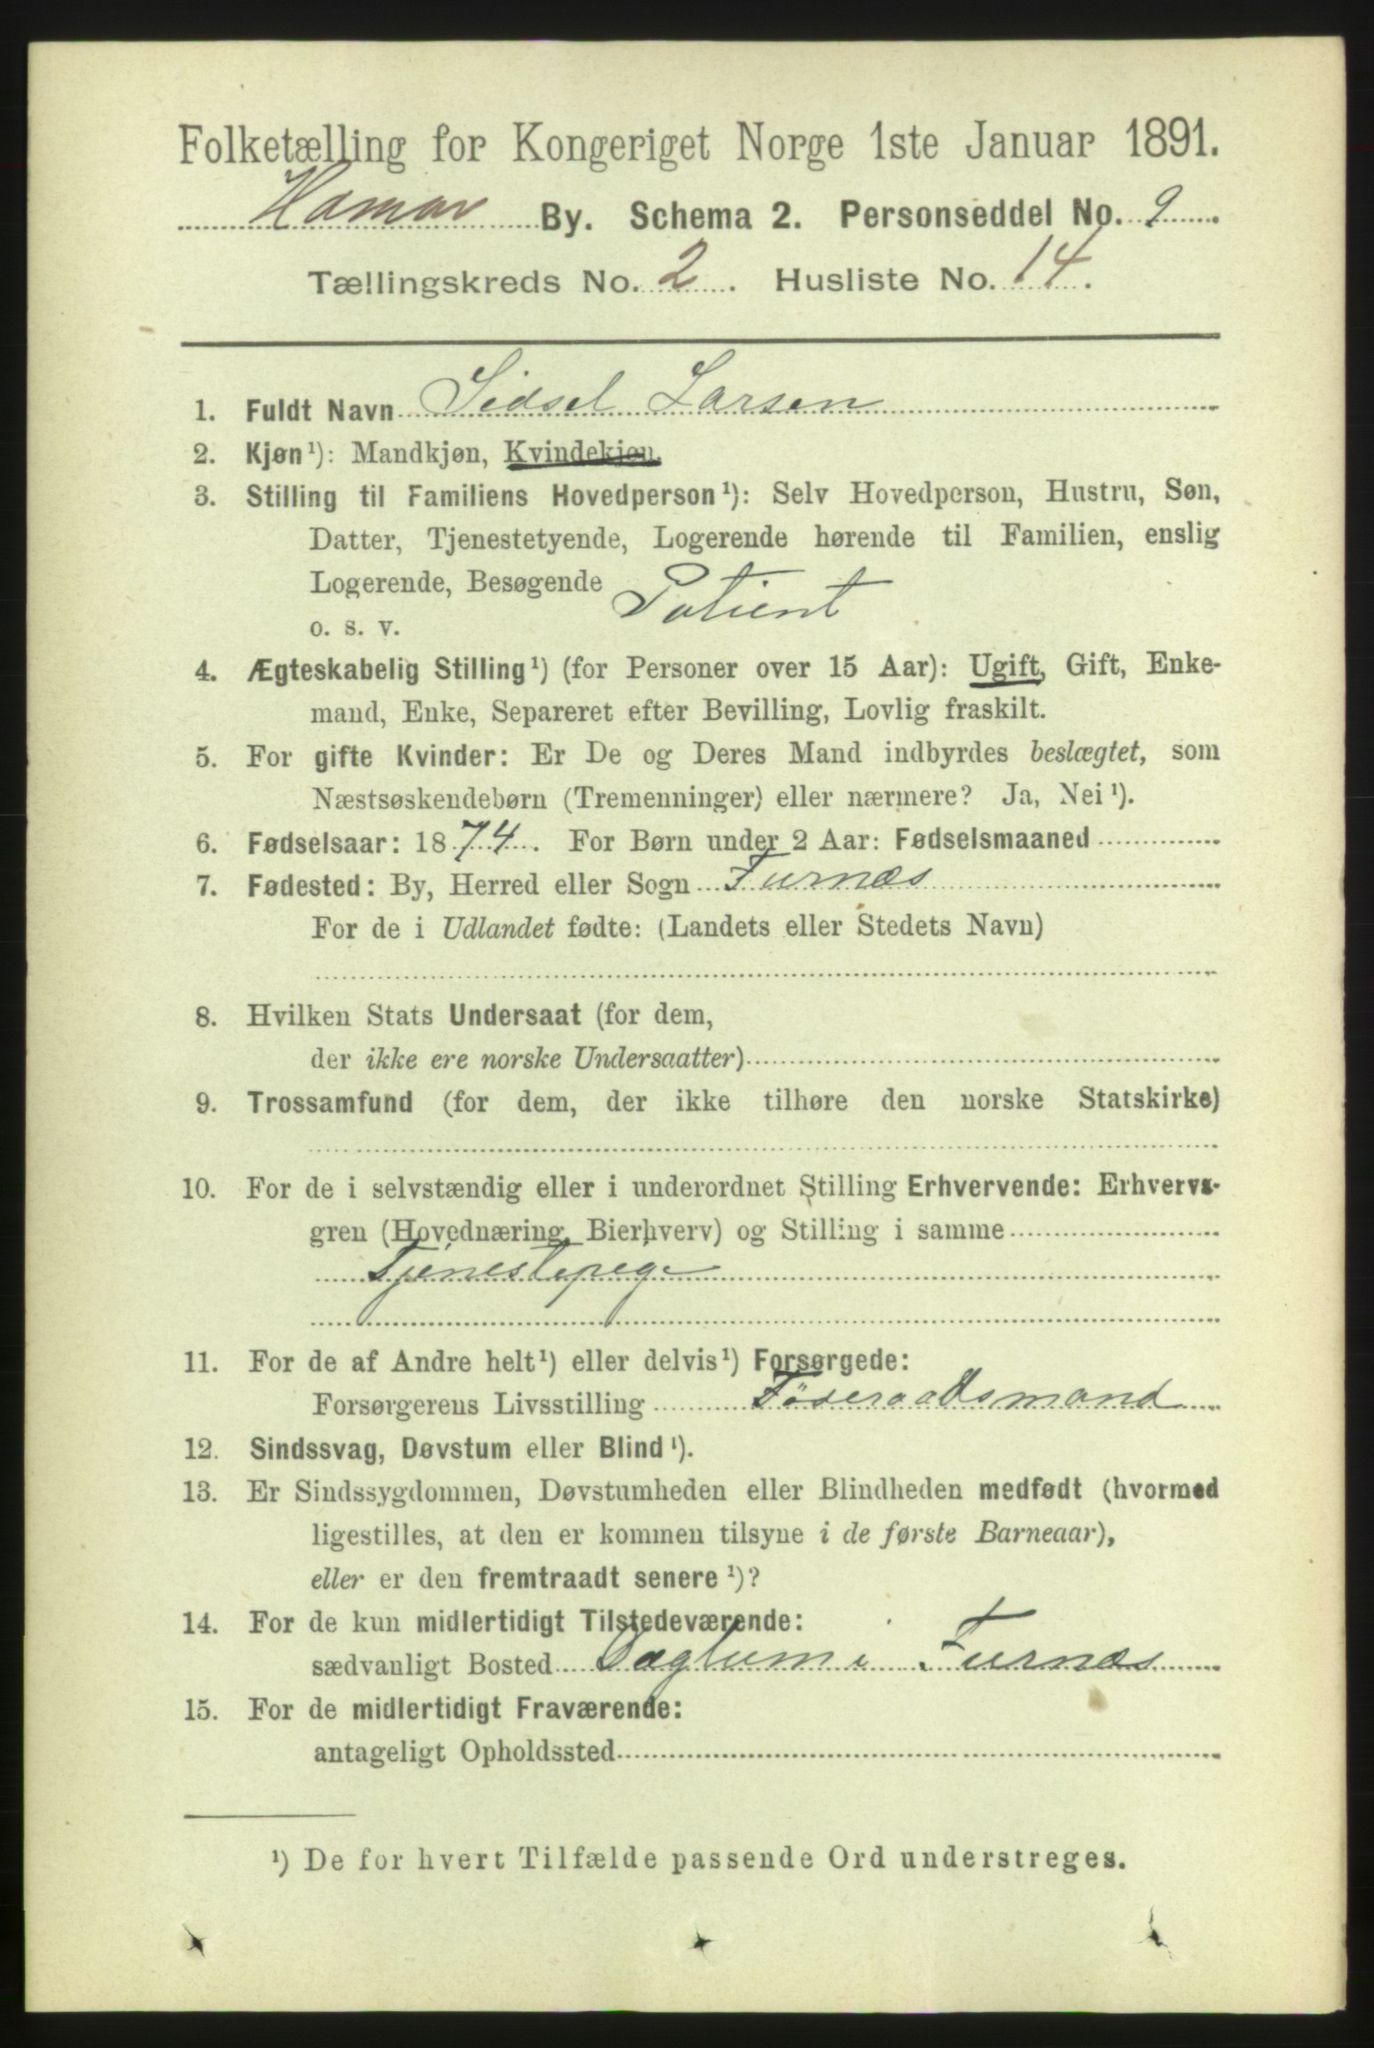 Folketælling for Kongeriget Norge 1ste Januar 1891.
Hamar By. Schema 2. Personseddel No. 9.
Tællingskreds No. 2. Husliste No. 14.
1. Fuldt Navn Sidsel Larsen
2. Kjøn¹): Mandkjøn, Kvindekjøn.
3. Stilling til Familiens Hovedperson¹): Selv Hovedperson, Hustru, Søn,
Datter, Tjenestetyende, Logerende hørende til Familien, enslig
Logerende, Besøgende Patient
o. s. v.
4. Ægteskabelig Stilling¹) (for Personer over 15 Aar): Ugift, Gift, Enke-
mand, Enke, Separeret efter Bevilling, Lovlig fraskilt.
5. For gifte Kvinder: Er De og Deres Mand indbyrdes beslægtet, som
Næstsøskendebørn (Tremenninger) eller nærmere? Ja, Nei¹).
6. Fødselsaar: 1874. For Børn under 2 Aar: Fødselsmaaned
7. Fødested: By, Herred eller Sogn Furnæs
For de i Udlandet fødte: (Landets eller Stedets Navn)
8. Hvilken Stats Undersaat (for dem,
der ikke ere norske Undersaatter)
9. Trossamfund (for dem, der ikke tilhøre den norske Statskirke)
10. For de i selvstændig eller i underordnet Stilling Erhvervende: Erhvervs-
gren (Hovednæring, Bierhverv) og Stilling i samme
Tjenestepige
11. For de af Andre helt¹) eller delvis¹) Forsørgede:
Forsørgerens Livsstilling Föderaadsmand
12. Sindssvag, Døvstum eller Blind¹).
13. Er Sindssygdommen, Døvstumheden eller Blindheden medfødt (hvormed
ligestilles, at den er kommen tilsyne i de første Barneaar),
eller er den fremtraadt senere¹)?
14. For de kun midlertidigt Tilstedeværende:
sædvanligt Bosted i Furnæs
15. For de midlertidigt Fraværende:
antageligt Opholdssted
¹) De for hvert Tilfælde passende Ord understreges.